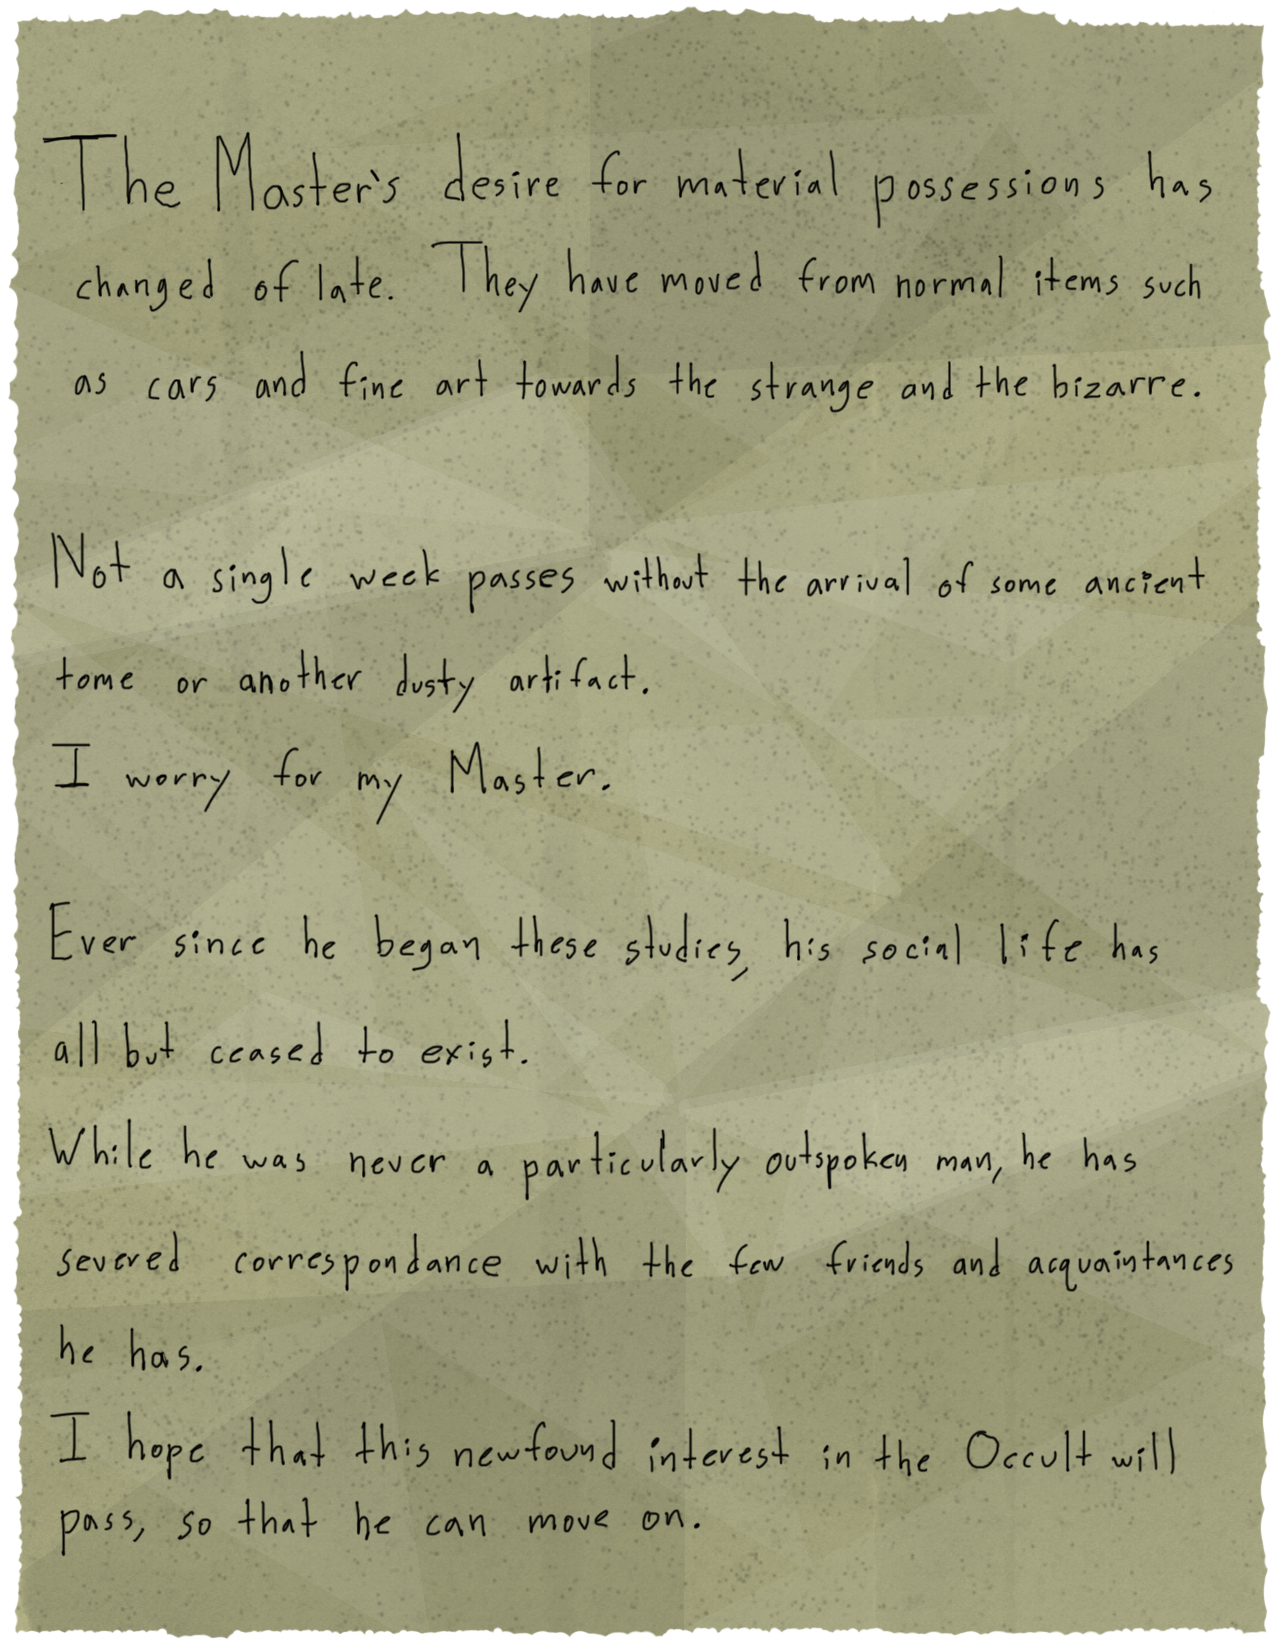 The Master's desire for material possessions has
changed of late. They have moved from normal items such
as cars and fine art towards the strange and the bizarre.
Not a single week passes without the arrival of some ancient
tome or another dusty artifact.
I worry for my Master.
Ever since he began these studies, his social life has
all but ceased to exist.
While he was never a particularly outspoken man, he has
severed correspondance with the few friends and acquaintances
he has.
I hope that this newfound interest in the Occult will
pass, so that he can move on.